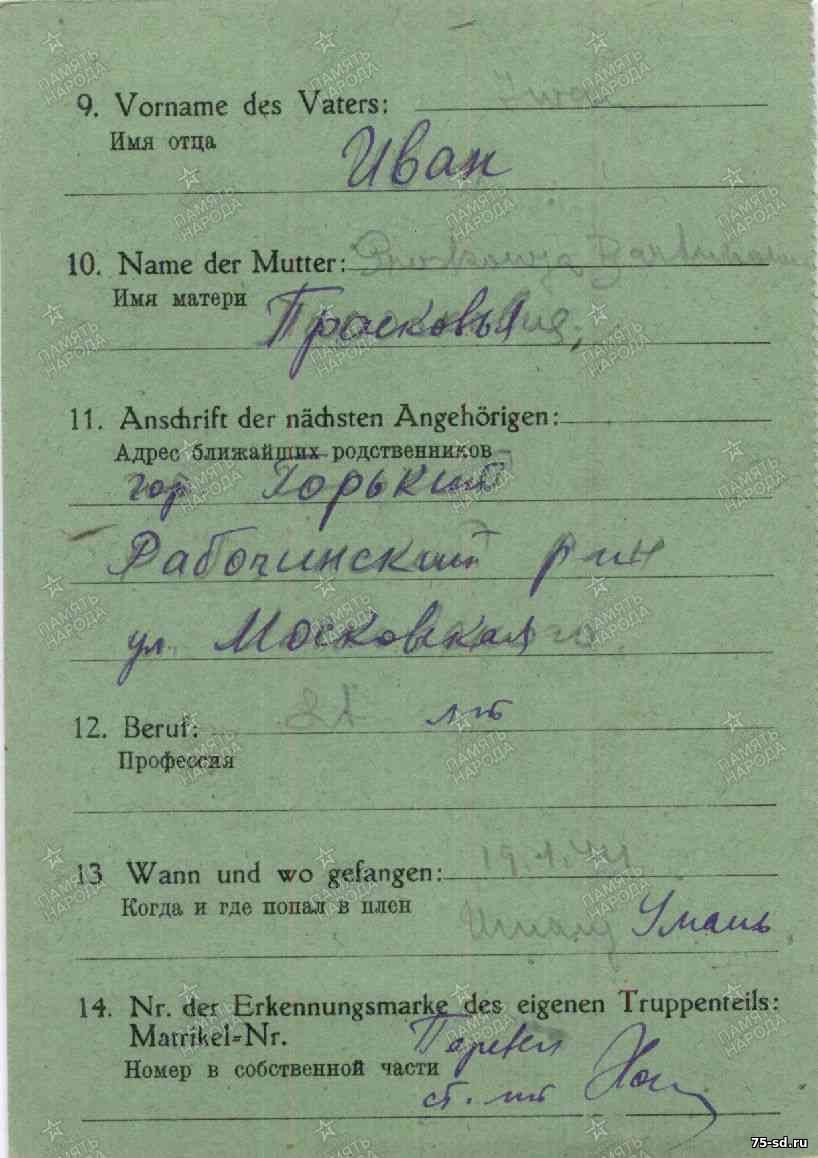 9. Vorname des Vaters: Iwan
Имя отца
Иван
10. Name der Mutter:
Имя матери
Прасковья
11. Anschrift der nächsten Angehörigen:
Адрес ближайших родственников
гор Горький
Рабочинский р-ин
ул. Московская
12. Beruf:
Профессия
13 Wann und wo gefangen:
Когда и где попал в плен
Умань
14. Nr. der Erkennungsmarke des eigenen Truppenteils:
Matrikel-Nr.
Номер в собственной части
ПАМЯТЬ НАРОДА
75-sd.ru